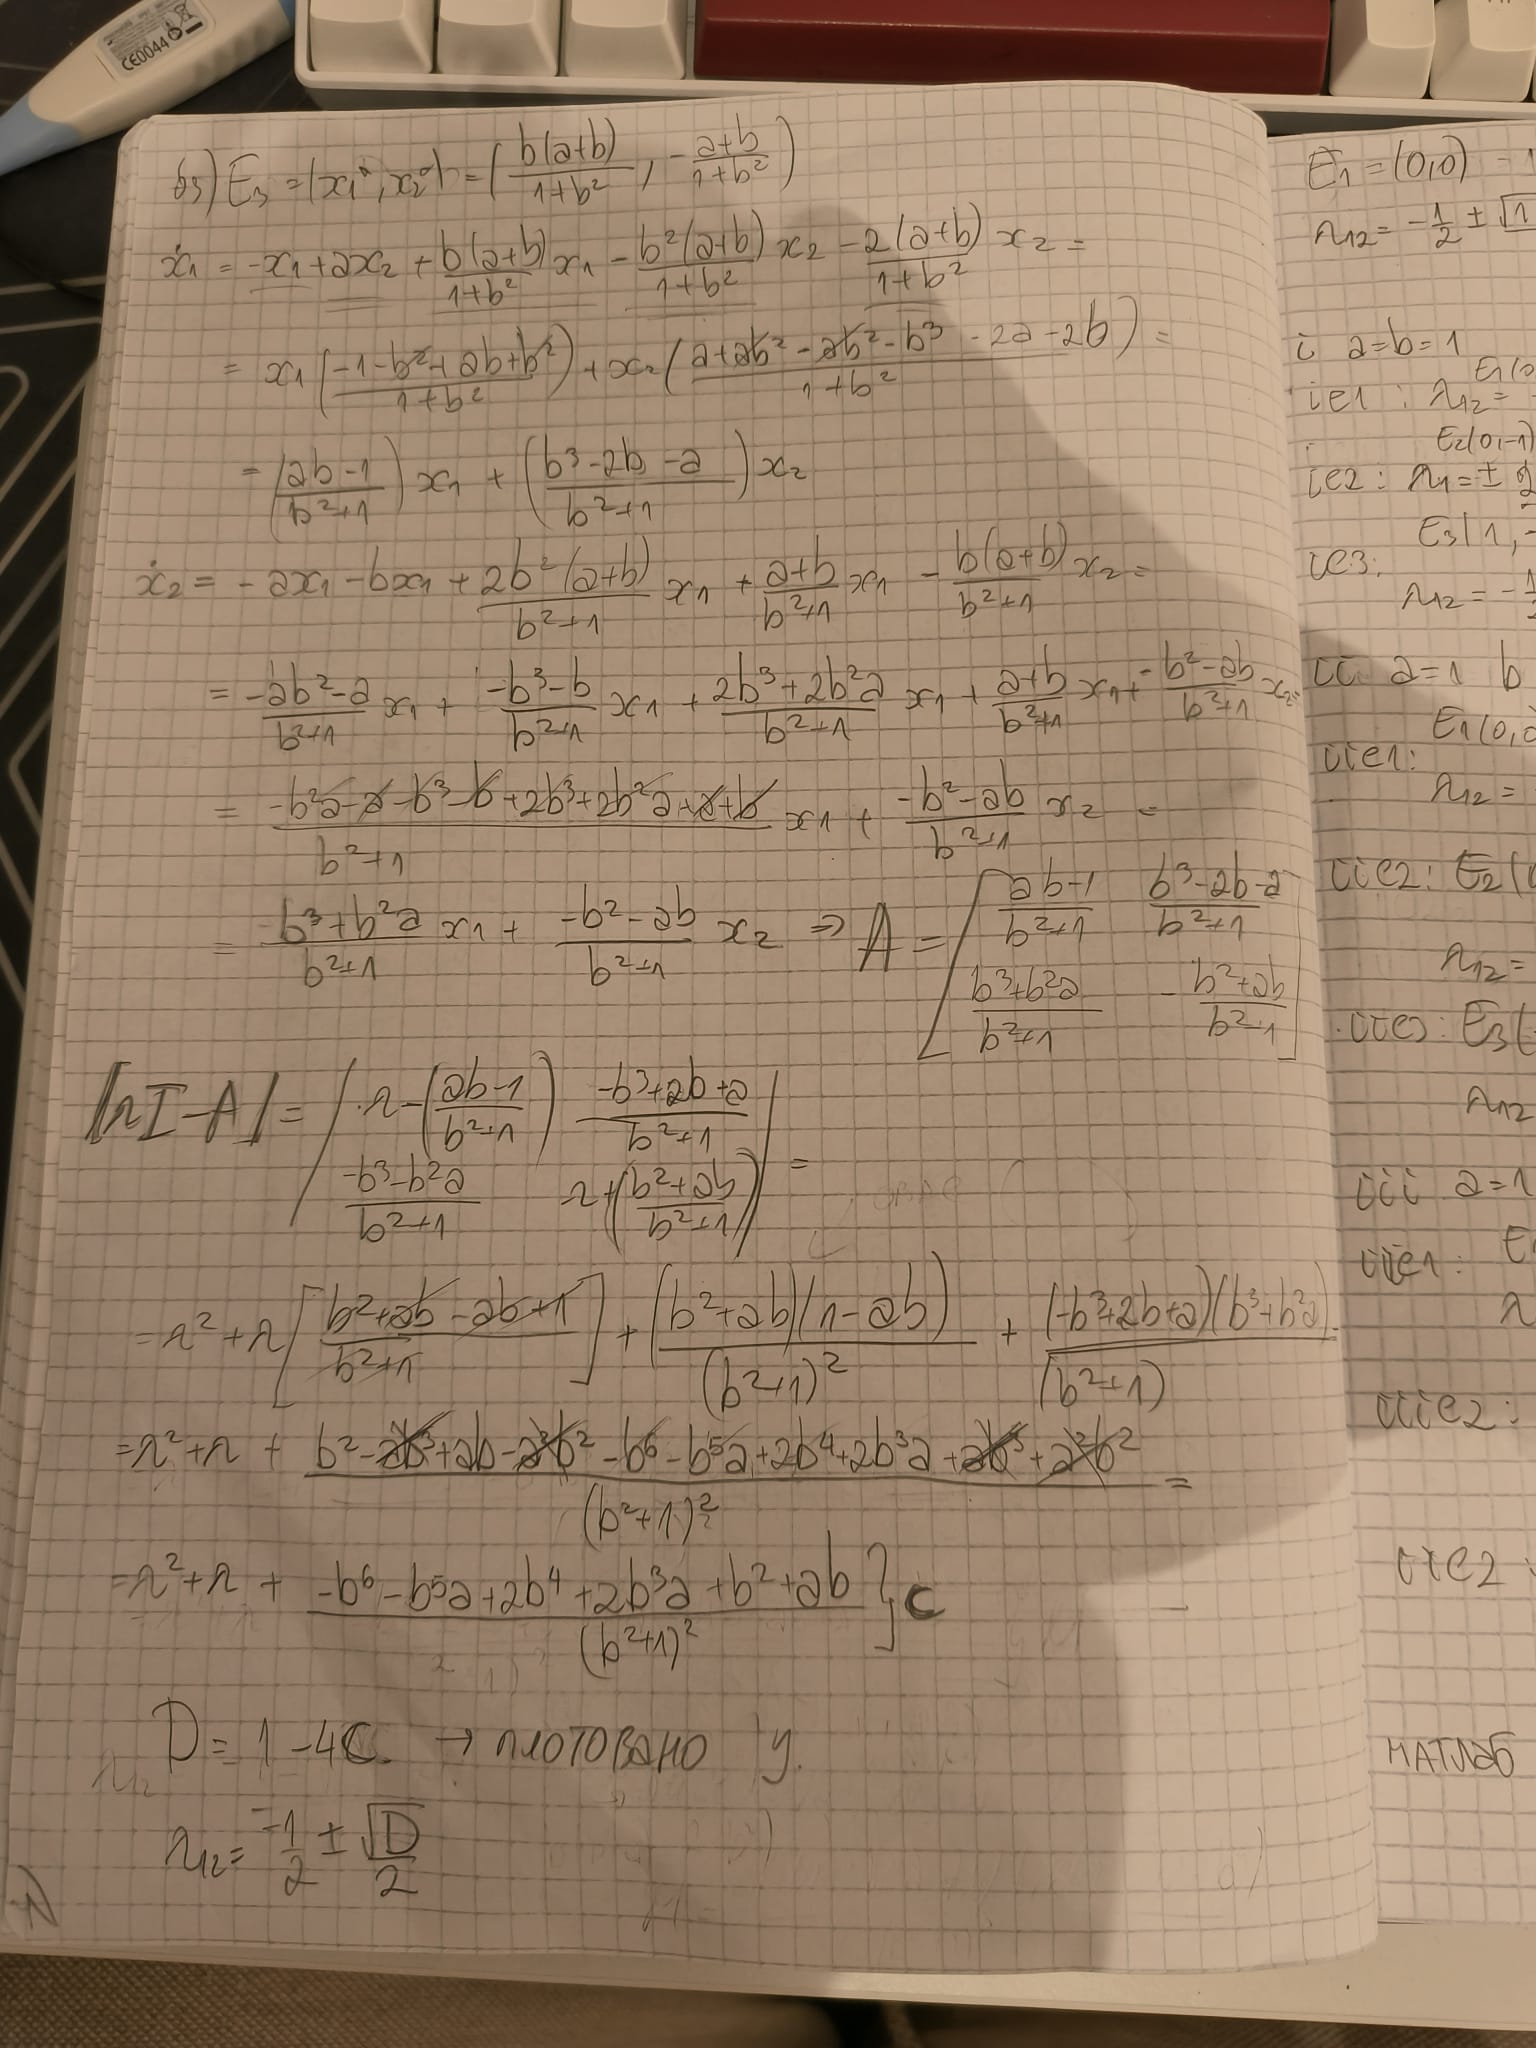 CE0044
b3) E₃ = (x₁*, x₂*) = (b(a+b)/(1+b²), -(a+b)/(1+b²))
ẋ₁ = -x₁ + ax₂ + b(a+b)/(1+b²) x₁ - b²(a+b)/(1+b²) x₂ - 2(a+b)/(1+b²) x₂ =
= x₁((-1-b²+ab+b²)/(1+b²)) + x₂((a+ab²-ab²-b³-2a-2b)/(1+b²)) =
= ((ab-1)/(b²+1)) x₁ + ((b³-2b-a)/(b²+1)) x₂
ẋ₂ = -ax₁ - bx₁ + 2b²(a+b)/(b²+1) x₁ + (a+b)/(b²+1) x₁ - b(a+b)/(b²+1) x₂ =
= (-ab²-a)/(b²+1) x₁ + (-b³-b)/(b²+1) x₁ + (2b³+2b²a)/(b²+1) x₁ + (a+b)/(b²+1) x₁ + (-b²-ab)/(b²+1) x₂ =
= (-b²a-a-b³-b+2b³+2b²a+a+b)/(b²+1) x₁ + (-b²-ab)/(b²+1) x₂ =
= (b³+b²a)/(b²+1) x₁ + (-b²-ab)/(b²+1) x₂ ⇒ A = [(ab-1)/(b²+1) (b³-2b-a)/(b²+1)
(b³+b²a)/(b²+1) -(b²+ab)/(b²+1)]
|λI-A| = |λ-((ab-1)/(b²+1)) (-b³+2b+a)/(b²+1)
(-b³-b²a)/(b²+1) λ+((b²+ab)/(b²+1))| =
= λ² + λ[(b²+ab-ab+1)/(b²+1)] + (b²+ab)(1-ab)/(b²+1)² + (-b³+2b+a)(b³+b²a)/(b²+1)
= λ² + λ + (b²-ab³+ab-a²b²-b⁶-b⁵a+2b⁴+2b³a+ab³+a²b²)/(b²+1)² =
= λ² + λ + (-b⁶-b⁵a+2b⁴+2b³a+b²+ab)/(b²+1)² } c
D = 1-4c. → плотовано у.
λ₁₂ = -1/2 ± √D/2
E₁ = (0,0)
λ₁₂ = -1/2 ± √1
i a=b=1
E₁(0
ie1: λ₁₂ =
E₂(0,-1)
ie2: λ₁ = ±
E₃(1,-
ie3:
λ₁₂ = -1
ii a=1 b
E₁(0,0
iie1:
λ₁₂ =
iie2: E₂(
λ₁₂ =
iie3: E₃(
λ₁₂
iii a=1
iiie1:
λ
iiie2:
матлаб